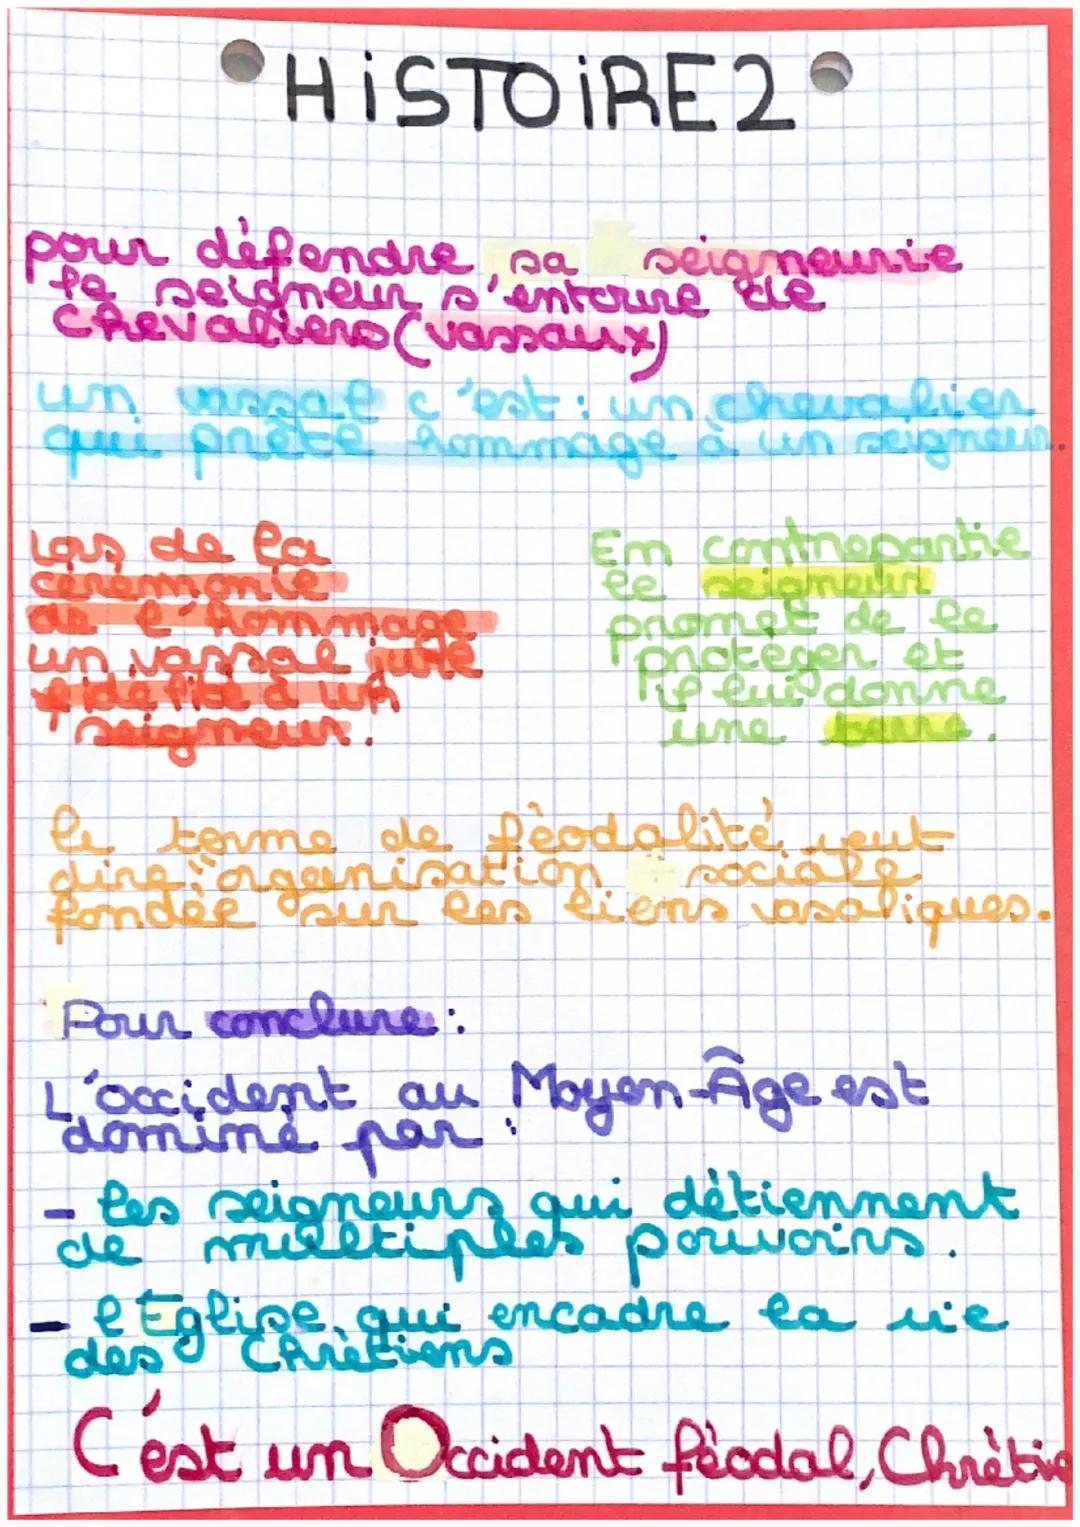 HiSTOiRE2
pour défendre sa seigneurie
le seigneur s'entoure de
chevaliers (vassaux)
un vassal c'est : un chevalier
qui prête hommage à un seigneur.
Lors de la
cérémonie
de l'hommage
un vassal jure
fidélité à un
seigneur.
En contrepartie
le seigneur
promet de le
protéger et
il lui donne
une terre.
le terme de féodalité veut
dire : organisation sociale
fondée sur les liens vasaliques.
Pour conclure :
L'occident au Moyen-Âge est
dominé par :
- les seigneurs qui détiennent
de multiples pouvoirs.
- l'Eglise qui encadre la vie
des Chrétiens
C'est un Occident féodal, Chrétie